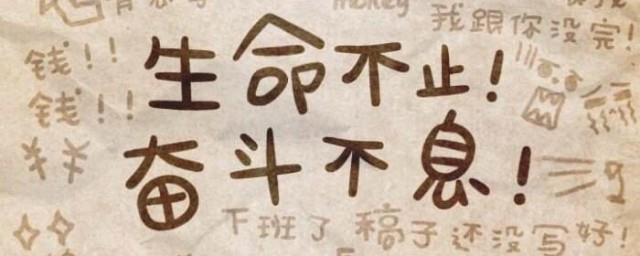 money
我跟你没完!
钱!!
生命不止!
钱!!
¥¥
奋斗不息!
下班了 稿子还没写好!